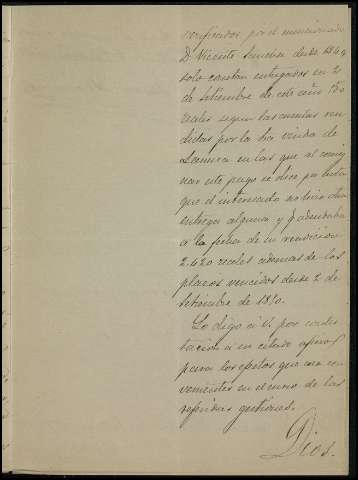 verificados por el mencionado
D. Vicente Sanchez desde 1849
solo constan entregados en 2
de Setiembre de este año 150
reales segun las cuentas ren
didas por la
en las que al consig
nar este pago se dice
que el interesado no hizo otra
entrega alguna y q. adeudaba
a la fecha de su rendicion
2.420 reales ademas de los
plazos vencidos desde 2 de
Setiembre de 1870.
Lo digo á V. por contes
tacion á su citado oficio
para los efectos que crea con
venientes en el curso de las
referidas gestiones.
Dios.